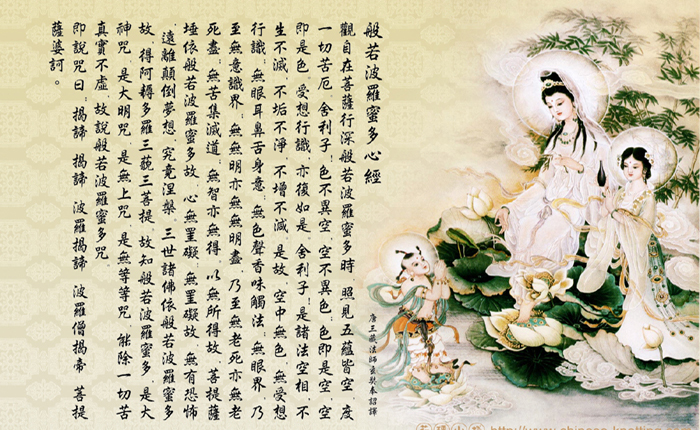 般若波羅蜜多心經
唐三藏法師玄奘奉詔譯
觀自在菩薩行深般若波羅蜜多時，照見五蘊皆空，度
一切苦厄，舍利子！色不異空，空不異色，色即是空，空
即是色，受想行識，亦復如是，舍利子！是諸法空相，不
生不滅，不垢不淨，不增不減，是故，空中無色，無受想
行識，無眼耳鼻舌身意，無色聲香味觸法，無眼界，乃
至無意識界，無無明亦無無明盡，乃至無老死亦無老
死盡，無苦集滅道，無智亦無得，以無所得故，菩提薩
埵依般若波羅蜜多故，心無罣礙，無罣礙故，無有恐怖
，遠離顛倒夢想，究竟涅槃，三世諸佛依般若波羅蜜多
故，得阿耨多羅三藐三菩提，故知般若波羅蜜多，是大
神咒，是大明咒，是無上咒，是無等等咒，能除一切苦
真實不虛，故說般若波羅蜜多咒，
即說咒曰：揭諦，揭諦，波羅揭諦，波羅僧揭帝，菩提
薩婆訶。